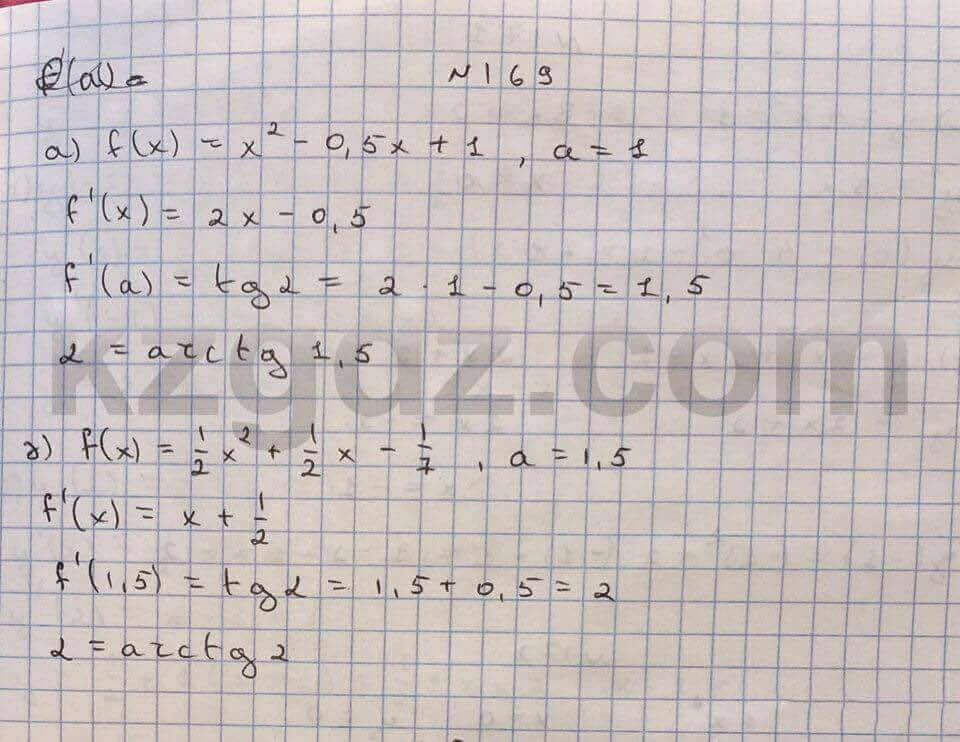 f'(a) =
N 169
а) f(x) = x² - 0,5x + 1 , a = 1
f'(x) = 2x - 0,5
f'(a) = tg α = 2 · 1 - 0,5 = 1,5
α = arctg 1,5
kzgdz.com
г) f(x) = 1/2 x² + 1/2 x - 1/7 , a = 1,5
f'(x) = x + 1/2
f'(1,5) = tg α = 1,5 + 0,5 = 2
α = arctg 2